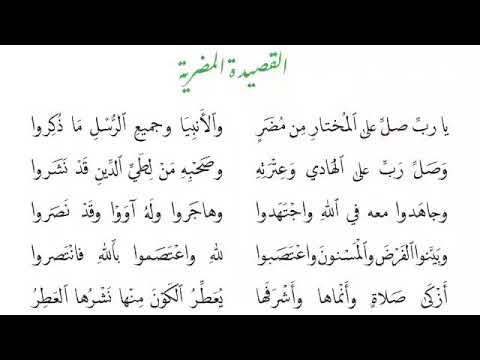 القصيدة المضرية
يا ربِّ صلِّ على ٱلْمُختارِ مِن مُضَرٍ وٱلأَنبِيَا وجميعِ ٱلرُّسْلِ مَا ذُكِروا
وَصَلِّ رَبِّ على ٱلهَادي وَعِتْرَتِهِ وصَحْبِهِ مَنْ لِطَيِّ ٱلدِّينِ قَدْ نَشَروا
وجاهَدوا معه في ٱللهِ وٱجتَهَدوا وهاجَروا وَلَهُ آوَوْا وقَدْ نَصَروا
وبَيَّنُوا ٱلفَرْضَ وٱلْمَسْنونَ وٱعتَصَبوا للهِ وٱعتَصَموا بٱللهِ فٱنتَصروا
أزْكَى صَلاةٍ وأنْماها وأشْرَفَها يُعَطِّرُ ٱلكَوْنَ مِنْها نَشْرُها ٱلعَطِرُ